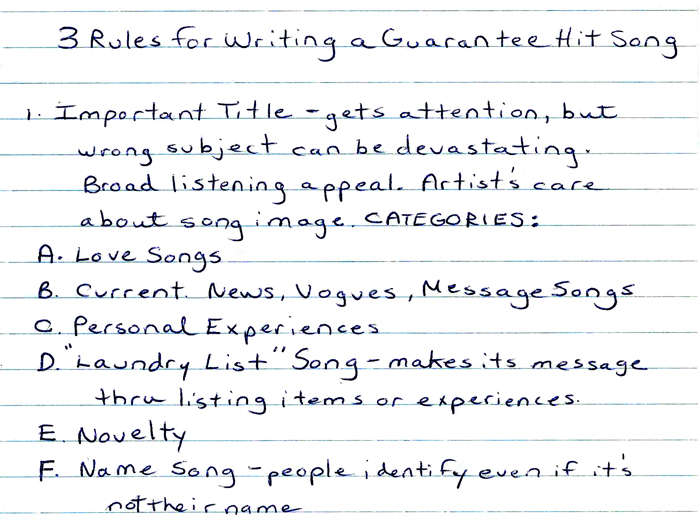 3 Rules for Writing a Guarantee Hit Song
1. Important Title - gets attention, but
wrong subject can be devastating.
Broad listening appeal. Artist's care
about song image. CATEGORIES:
A. Love Songs
B. Current. News, Vogues, Message Songs
C. Personal Experiences
D. "Laundry List" Song - makes its message
thru listing items or experiences.
E. Novelty
F. Name Song - people identify even if it's
not their name